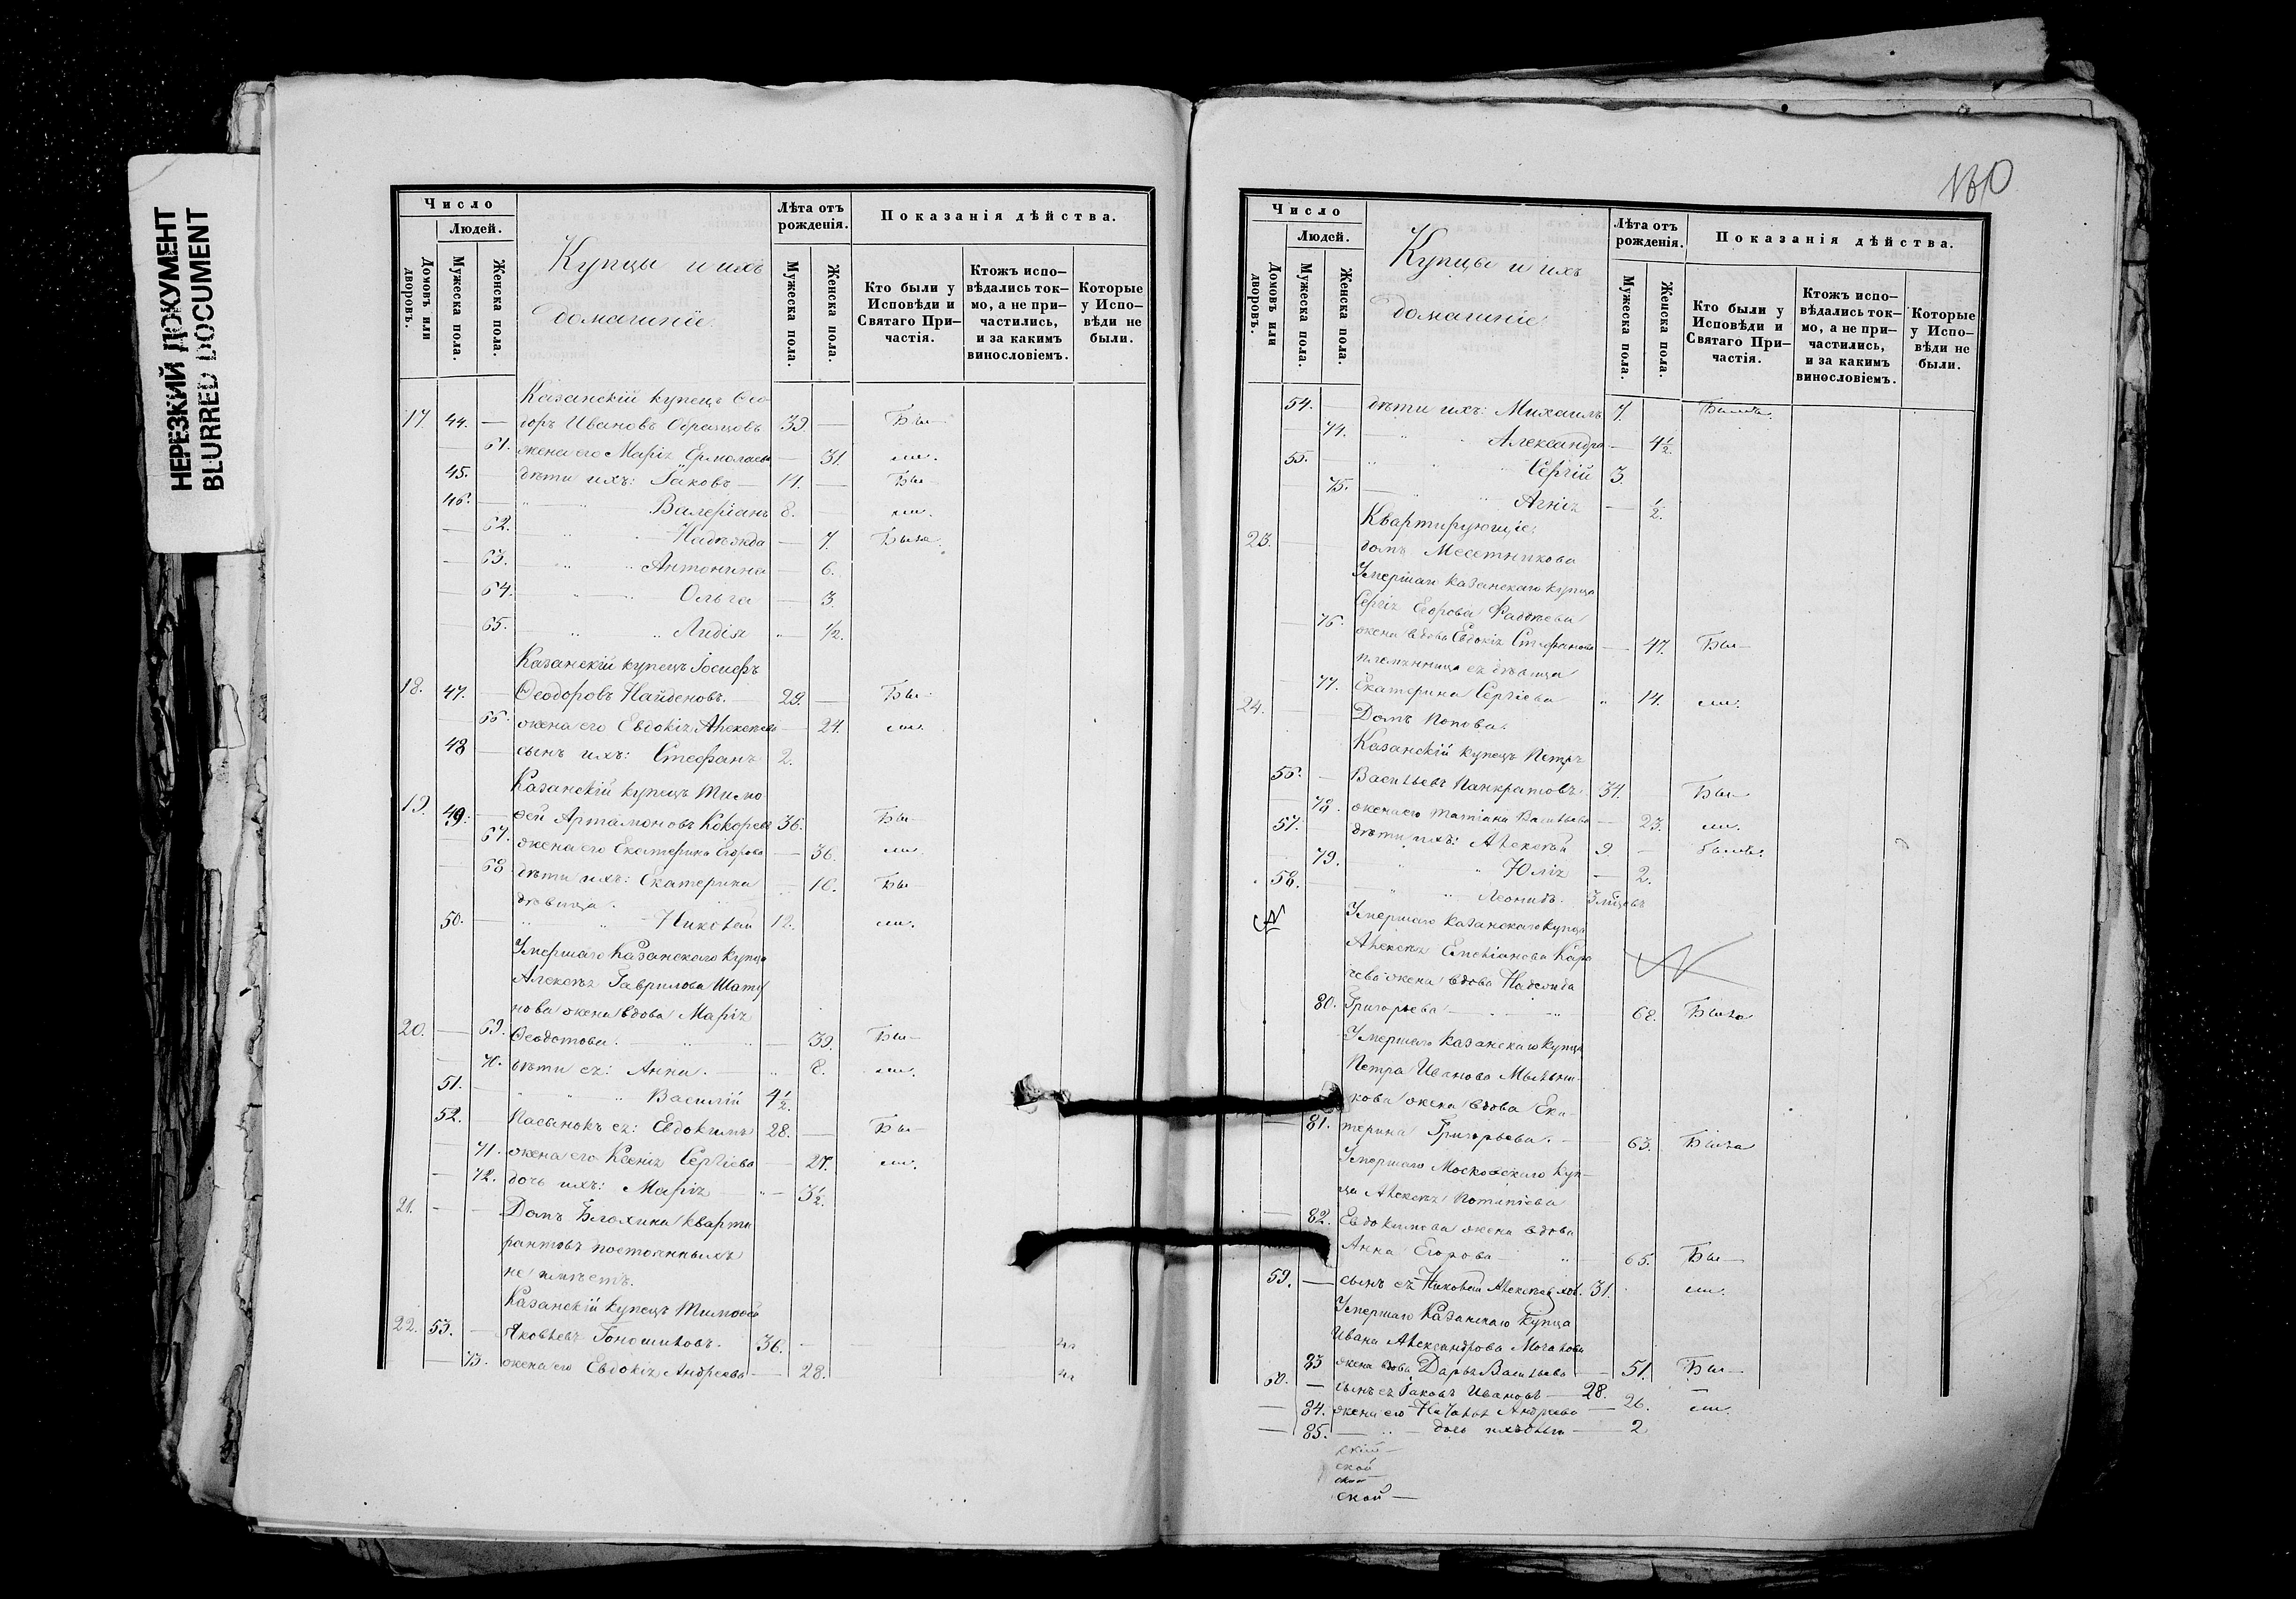 НЕРЕЗКИЙ ДОКУМЕНТ
BLURRED DOCUMENT
Число
Людей.
Домовъ или дворовъ.
Мужеска пола.
Женска пола.
Купцы и ихъ
домашніе.
Лѣта отъ рожденія.
Мужеска пола.
Женска пола.
Показанія дѣйства.
Кто были у Исповѣди и Святаго Причастія.
Ктожъ исповѣдались токмо, а не причастились, и за какимъ винословіемъ.
Которые у Исповѣди не были.
Казанскій купецъ Ѳео
17. 44. — доръ Ивановъ Образцовъ 39. — Бы—
— 61. жена его Марія Ермолаева — 31. ли.
45. дѣти ихъ: Іаковъ — 11. — Бы—
46. — " Валеріанъ 8. — ли.
— 62. " Надежда — 7. Была.
— 63. " " Антонина — 6.
— 64. " " Ольга — 3.
— 65. " " Лидія " — 1/2.
Казанскій купецъ Іосифъ
18. 47. — Ѳеодоровъ Найденовъ. 29. — Бы—
— 66. жена его Евдокія Алексѣева — 21. ли.
48 — сынъ ихъ: Стефанъ 2.
Казанскій купецъ Тимо
19. 49. — ѳей Артамоновъ Кокоревъ 36. Бы—
— 67. жена его Екатерина Егорова — 36. ли.
— 68 дѣти ихъ: Екатерина — 16. Бы—
дѣвица.
50. — " " Николай 12. ли.
Умершаго Казанскаго купца
Алексѣя Гаврилова
нова жена вдова Марія
20. — 69. Ѳеодотова. — " " — 39. Бы—
— 70. дѣти ея: Анна. — " 8. ли.
51. — " " Василій 4 1/2.
52. — Пасынокъ ея: Евдокимъ 28. — Бы—
— 71. жена его Ксенія Сергіева — 27. ли.
— 72. дочь ихъ: Марія " — 3 1/2.
21. — — Домъ Блохина кварти
рантовъ постоянныхъ
не имѣетъ.
Казанскій купецъ Тимоѳей
22. 53. — Яковлевъ 36. —
— 73. жена его Евдокія Андреева — 28.
130
Число
Людей.
Домовъ или дворовъ.
Мужеска пола.
Женска пола.
Купцы и ихъ
домашніе.
Лѣта отъ рожденія.
Мужеска пола.
Женска пола.
Показанія дѣйства.
Кто были у Исповѣди и Святаго Причастія.
Ктожъ исповѣдались токмо, а не причастились, и за какимъ винословіемъ.
Которые у Исповѣди не были.
54. — дѣти ихъ: Михаилъ 7. Былъ.
— 74. — " " Александра — 4 1/2.
55. " " Сергій 3.
— 75. — " " Агнія — 1/2.
Квартирующіе:
23. — домъ Месетникова
Умершаго казанскаго купца
Сергія Егорова Фаддѣева
— 76. жена вдова Евдокія Стефанова — 47. Бы—
племянница ея дѣвица
— 77. Екатерина Сергіева " 14. ли.
24. — Домъ Попова.
Казанскій купецъ Петръ
56. — Васильевъ Панкратовъ 31. Бы—
— 78. жена его Татіана Васильева — 23. ли.
57. дѣти ихъ: Алексѣй 9. — былъ.
— 79. " Юлія — 2.
58. — " " Леонидъ.
Умершаго казанскаго купца
Алексѣя Емеліанова Кара
чева жена вдова Надежда
80. Григорьева — " — " — 68. Была
Умершаго казанскаго купца
Петра Иванова Мыльни—
кова жена вдова Ека—
— 81. терина Григорьева. — 63. Была
Умершаго Московскаго куп—
ца Алексѣя Потапіева
— 82. Евдокимова жена вдова
Анна Егорова — " — 65. Бы—
59. — сынъ ея Николай 31. ли.
Умершаго Казанскаго купца
Ивана Александрова
83 жена вдова Дарья Васильева — 51. Бы—
60. — сынъ ея Іаковъ Ивановъ — 28. —
— 84. жена его Наталья Андреева — 26. ли.
— 85. — " — дочь ихъ — 2
скій —
ской
ской —